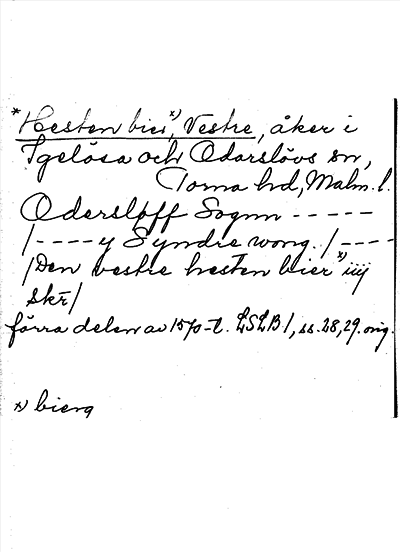 * Hesten bier x), Vestre, åker i
Igelösa och Odarslövs sn,
Torna hd, Malm. l.
Odersløff Sognn -----
/---- y Syndre wong. /----
/Den vestre hesten bier x) iiij
skr/
förra delen av 1570-t. LSLB 1, ss. 28, 29. orig.
x) bierg